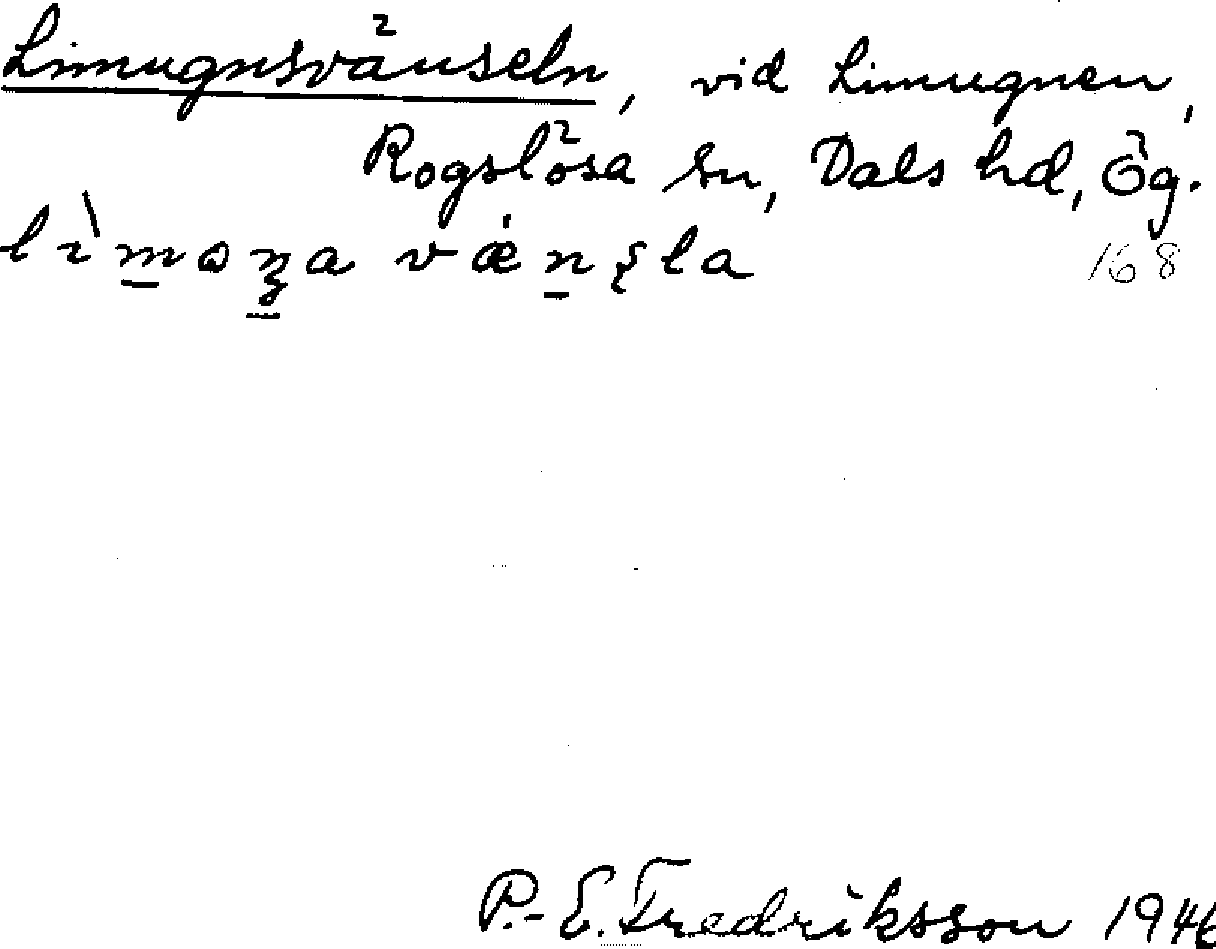 Limugnsvänseln, vid Limugnen,
Rogslösa sn, Dals hd, Ög.
168
P.-E. Fredriksson 1946